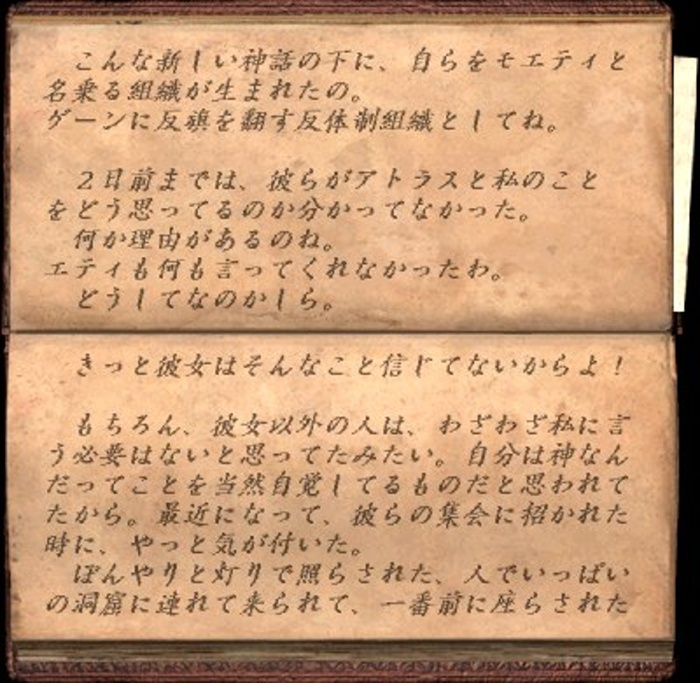 こんな新しい神話の下に、自らをモエティと
名乗る組織が生まれたの。
ゲーンに反旗を翻す反体制組織としてね。
２日前までは、彼らがアトラスと私のこと
をどう思ってるのか分かってなかった。
何か理由があるのね。
エティも何も言ってくれなかったわ。
どうしてなのかしら。
きっと彼女はそんなこと信じてないからよ！
もちろん、彼女以外の人は、わざわざ私に言
う必要はないと思ってたみたい。自分は神なん
だってことを当然自覚してるものだと思われて
たから。最近になって、彼らの集会に招かれた
時に、やっと気が付いた。
ぼんやりと灯りで照らされた、人でいっぱい
の洞窟に連れて来られて、一番前に座らされた